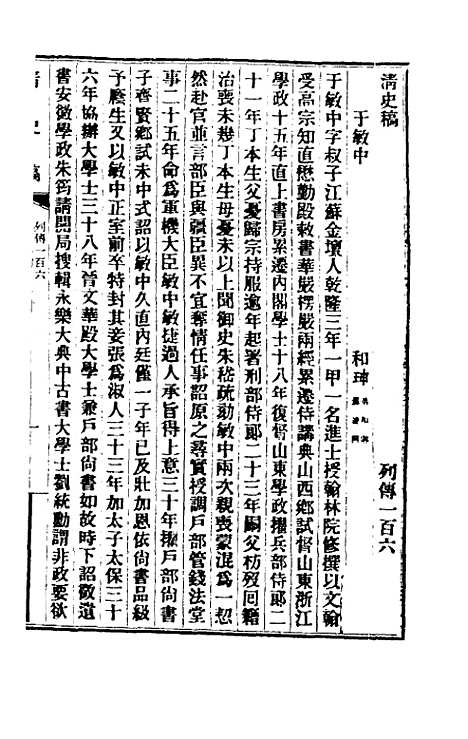 清史稿
列傳一百六
于敏中
和珅
于敏中字叔子江蘇金壇人乾隆三年一甲一名進士授翰林院修撰以文翰
受高宗知直懋勤殿敕書華嚴楞嚴兩經累遷侍講典山西鄉試督山東浙江
學政十五年直上書房累遷內閣學士十八年復督山東學政擢兵部侍郎二
十一年丁本生父憂歸宗持服逾年起署刑部侍郎二十三年嗣父枋歿回籍
治喪未幾丁本生母憂未以上聞御史朱嵇疏劾敏中兩次親喪蒙混爲一恝
然赴官並言部臣與疆臣異不宜奪情任事詔原之尋實授調戶部管錢法堂
事二十五年命爲軍機大臣敏中敏捷過人承旨得上意三十年擢戶部尚書
子齊賢鄉試未中式詔以敏中久直內廷僅一子年已及壯加恩依尚書品級
予廕生又以敏中正室前卒特封其妾張爲淑人三十三年加太子太保三十
六年協辦大學士三十八年晉文華殿大學士兼戶部尚書如故時下詔徵遺
書安徽學政朱筠請開局搜輯永樂大典中古書大學士劉統勳謂非政要欲
清史稿
列傳一百六